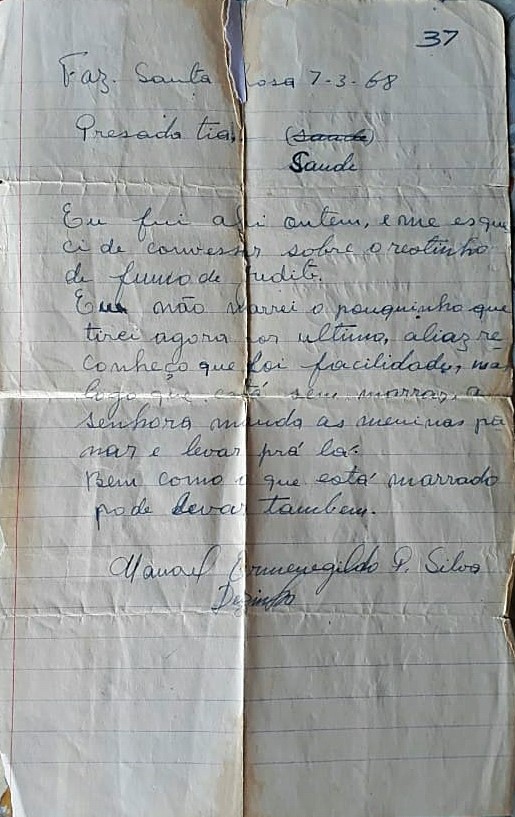 37
Faz. Santa Rosa 7-3-68
Presada tia, (saude)
Saude
Eu fui ahi ontem, e me esque
ci de conversar sobre o restinho
de fumo de Judite.
Eu não marrei o pouquinho que
tirei agora por ultimo, aliaz re
conheço que foi facilidade, mas
logo que está sem marrar, a
senhora manda as meninas pa
nar e levar prá lá.
Bem como o que está marrado
pode levar tambem.
Manoel Ermenegildo P. Silva